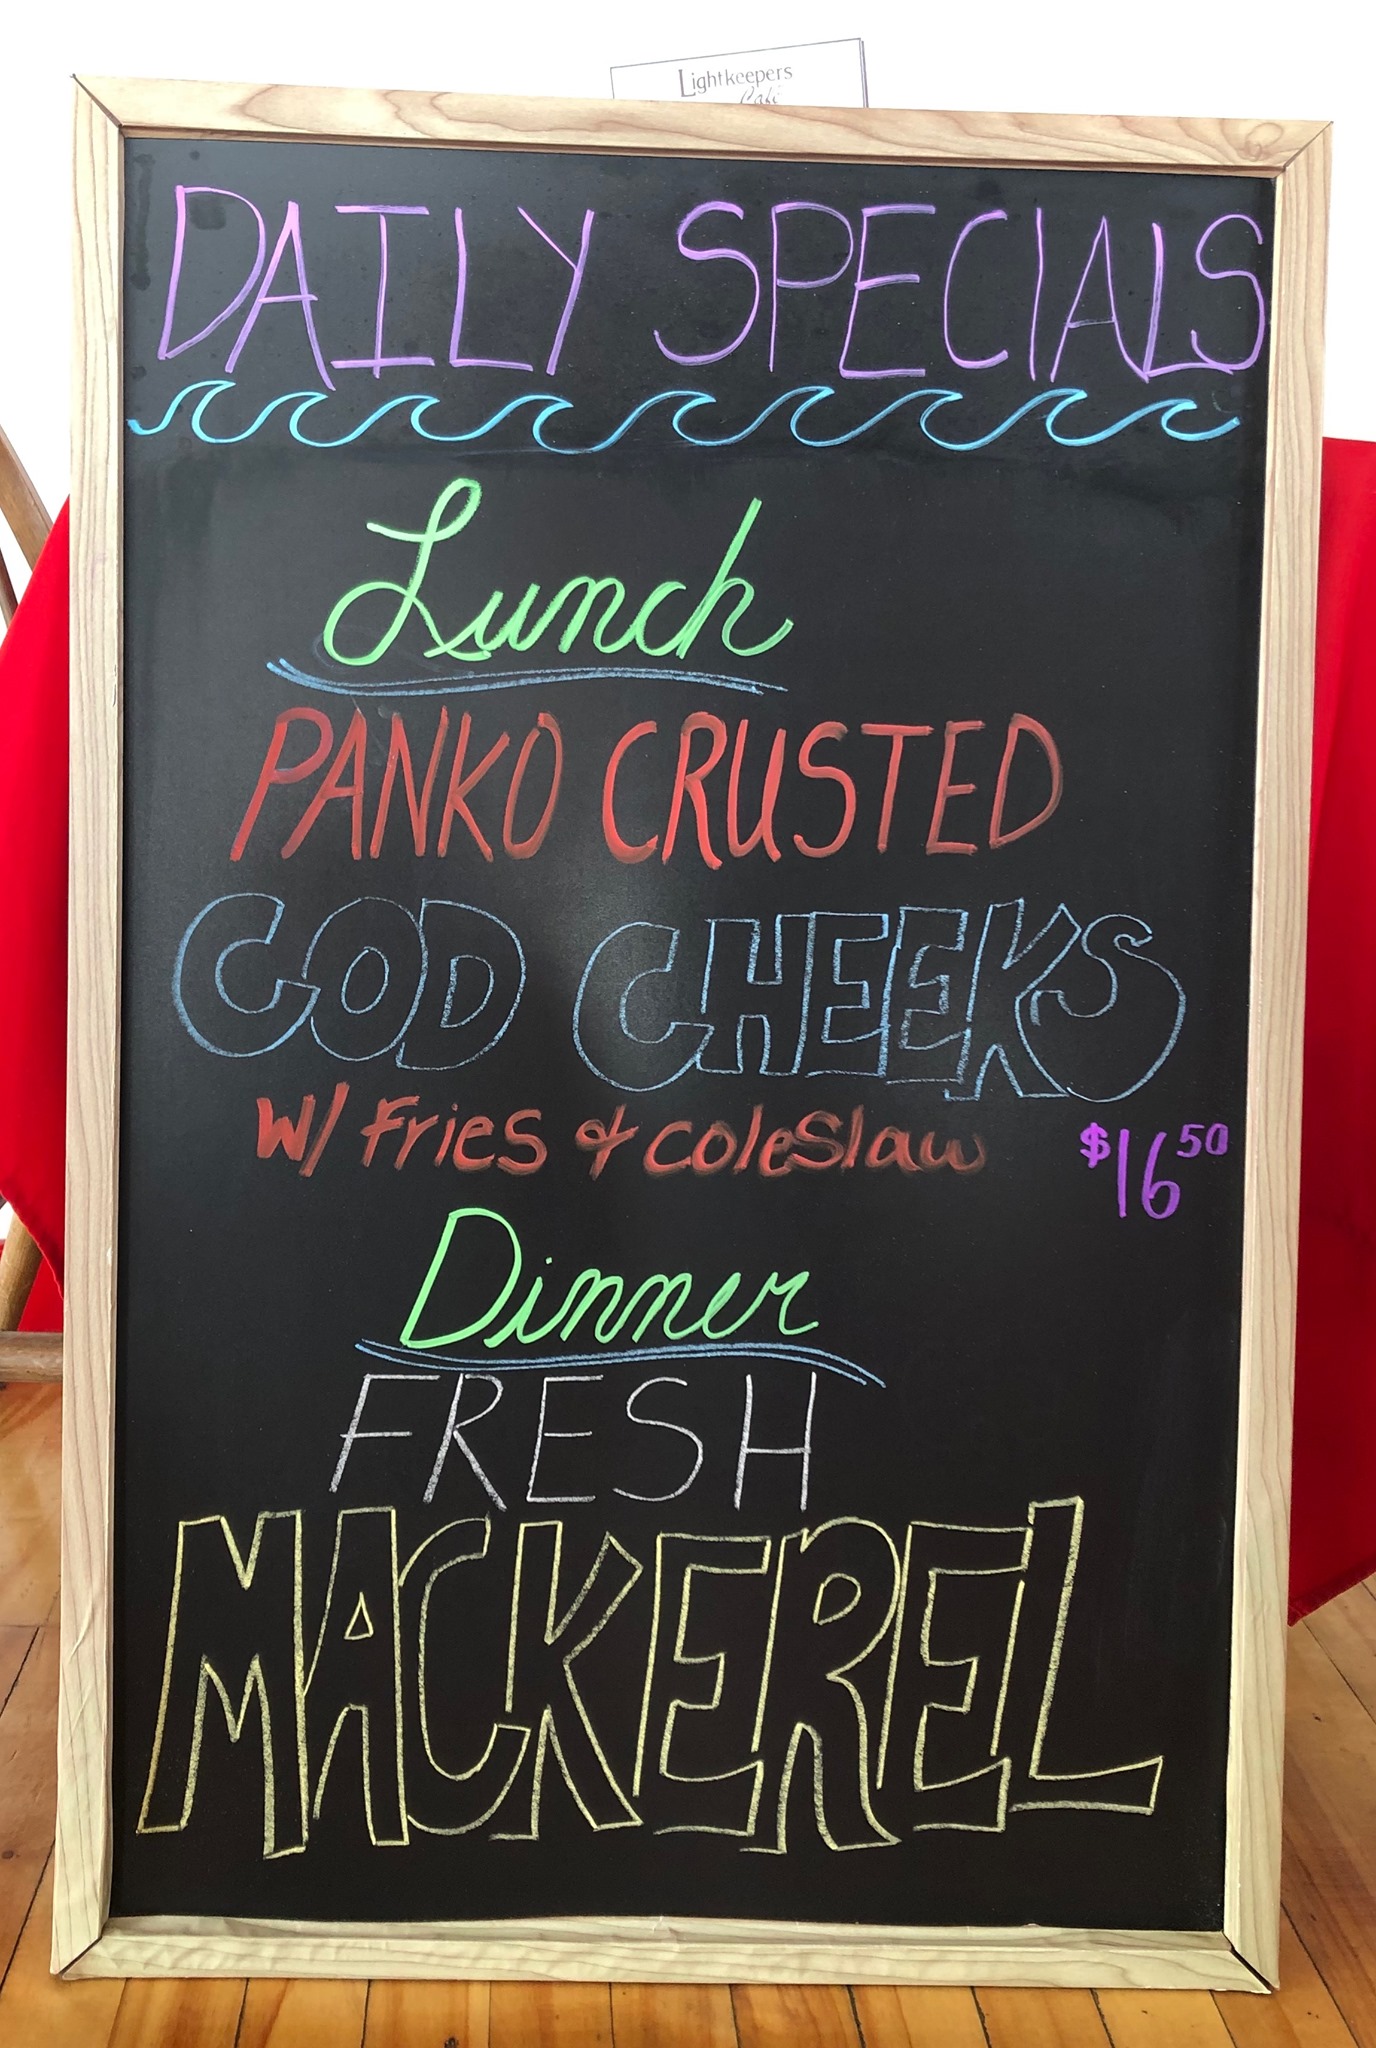 Lightkeepers
Café
DAILY SPECIALS
Lunch
PANKO CRUSTED
COD CHEEKS
W/ Fries & Coleslaw $16 50
Dinner
FRESH
MACKEREL